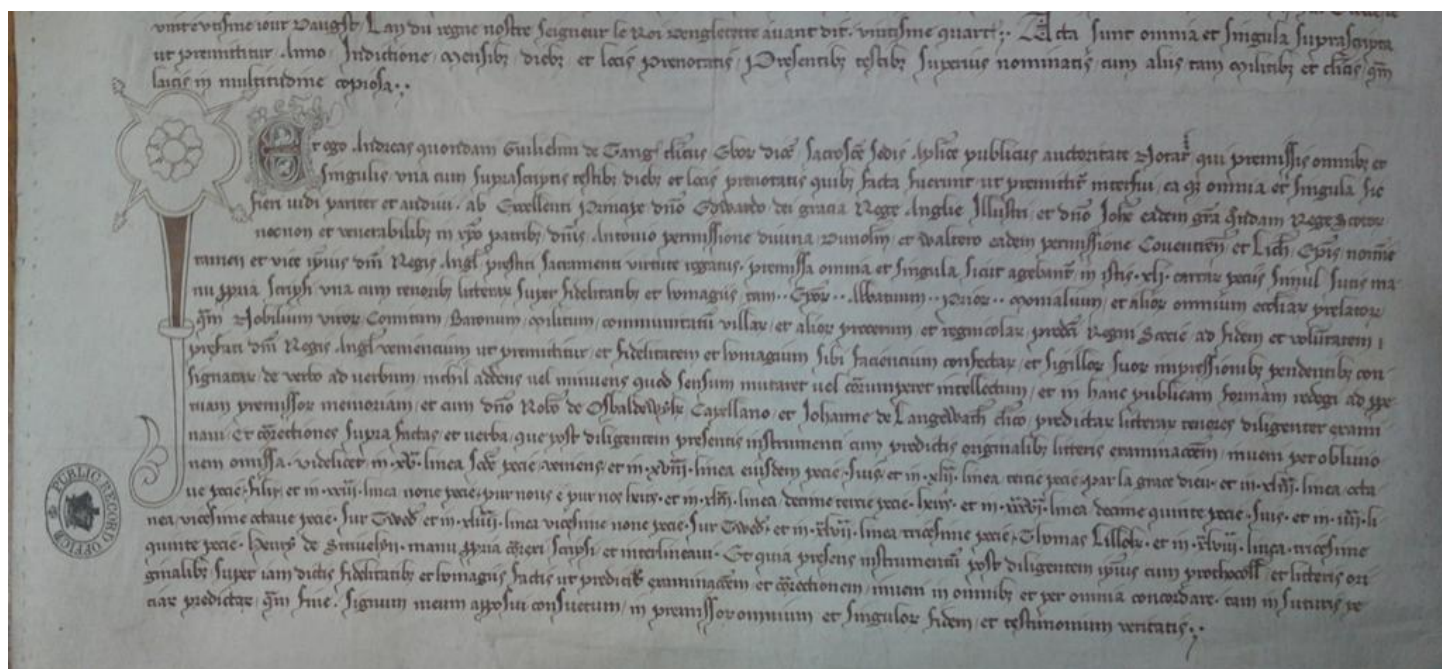 vintevtisme iour Daugst, Lan du regne nostre Seigneur le Roi Dengleterre auant dit vintisme quart. Acta sunt omnia et singula suprascripta
ut premittitur Anno Indictione Mensibz diebz et locis prenotatis, Presentibz testibz superius nominatis cum aliis tam militibz et clicis qm
laicis in multitudine copiosa.
Et ego Andreas quondam Guilielmi de Tang clicus Ebor dioc sacrosce sedis Aplice publicus auctoritate Notar qui premissis omnibz et
singulis una cum suprascriptis testibz diebz et locis prenotatis quibz facta fuerunt ut premittitr interfui, ea qz omnia et singula sic
fieri uidi pariter et audiui, ab Excellenti Principe dno Edwardo dei gracia Rege Anglie Illustri, et dno Johe eadem gra quondam Rege Scotor
necnon et uenerabilibz in xpo patribz dnis Antonio permissione diuina Dunolm, et Waltero eadem permissione Couentren et Lich Epis nomine
tamen et uice ipsius dni Regis Angl prestiti sacramenti uirtute rogatus, premissa omnia et singula sicut agebantr in istis xlj cartar peciis simul sutis ma
nu ppria scripsi una cum tenoribz litterar super fidelitatibz et homagiis tam Epor Abbatum Prior Monialium et alior omnium eccliar prelator
qm Nobilium uiror Comitum Baronum militum communitatu villar et alior procerum et regnicolar predci Regni Scocie ad fidem et uoluntatem
prefati dni Regis Angl ueniencium ut premittitur, et fidelitatem et homagium sibi faciencium confectar, et sigillor suor impressionibz pendentibz con
signatar de uerbo ad uerbum nichil addens uel minuens quod sensum mutaret uel corrumperet intellectum, et in hanc publicam formam redegi ad ppe
tuam premissor memoriam, et cum dno Robto de Capellano et Johanne de clico, predictar litterar tenores diligenter exami
naui, Et correctiones supra factas et uerba, que post diligentem presentis instrumenti cum predictis originalibz litteris examinacoem, inueni per obliuio
nem omissa, videlicet in xv linea secde pecie veniens, et in linea eiusdem pecie suis, et in xlij linea tercie pecie par la grace dieu, et in linea octa
ue pecie filii, et in linea none pecie pur nous e pur nos heirs, et in linea decime tercie pecie heirs, et in linea decime quinte pecie suis, et in iiij li
nea vicesime octaue pecie sur Twed, et in linea vicesime none pecie sur Twed, et in linea tricesime pecie Thomas Lillok, et in linea tricesime
quinte pecie Henry de manu ppria correxi scripsi et interlineaui. Et quia presens instrumentu post diligentem ipsius cum prothocoll et litteris ori
ginalibz super iam dictis fidelitatibz et homagiis factis ut predicitr examinacoem et correctionem, inueni in omnibz et per omnia concordare, tam in suturis pe
ciar predictar, qm fine, signum meum apposui consuetum, in premissor omnium et singulor fidem et testimonium ueritatis.
PUBLIC RECORD OFFICE